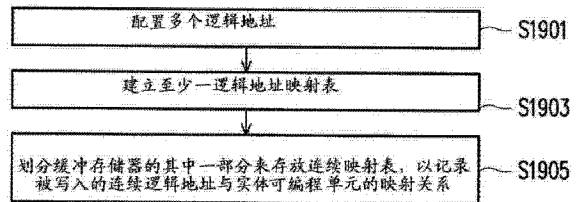 配置多个逻辑地址
S1901
建立至少一逻辑地址映射表
S1903
划分缓冲存储器的其中一部分来存放连续映射表，以记录
被写入的连续逻辑地址与实体可编程单元的映射关系
S1905